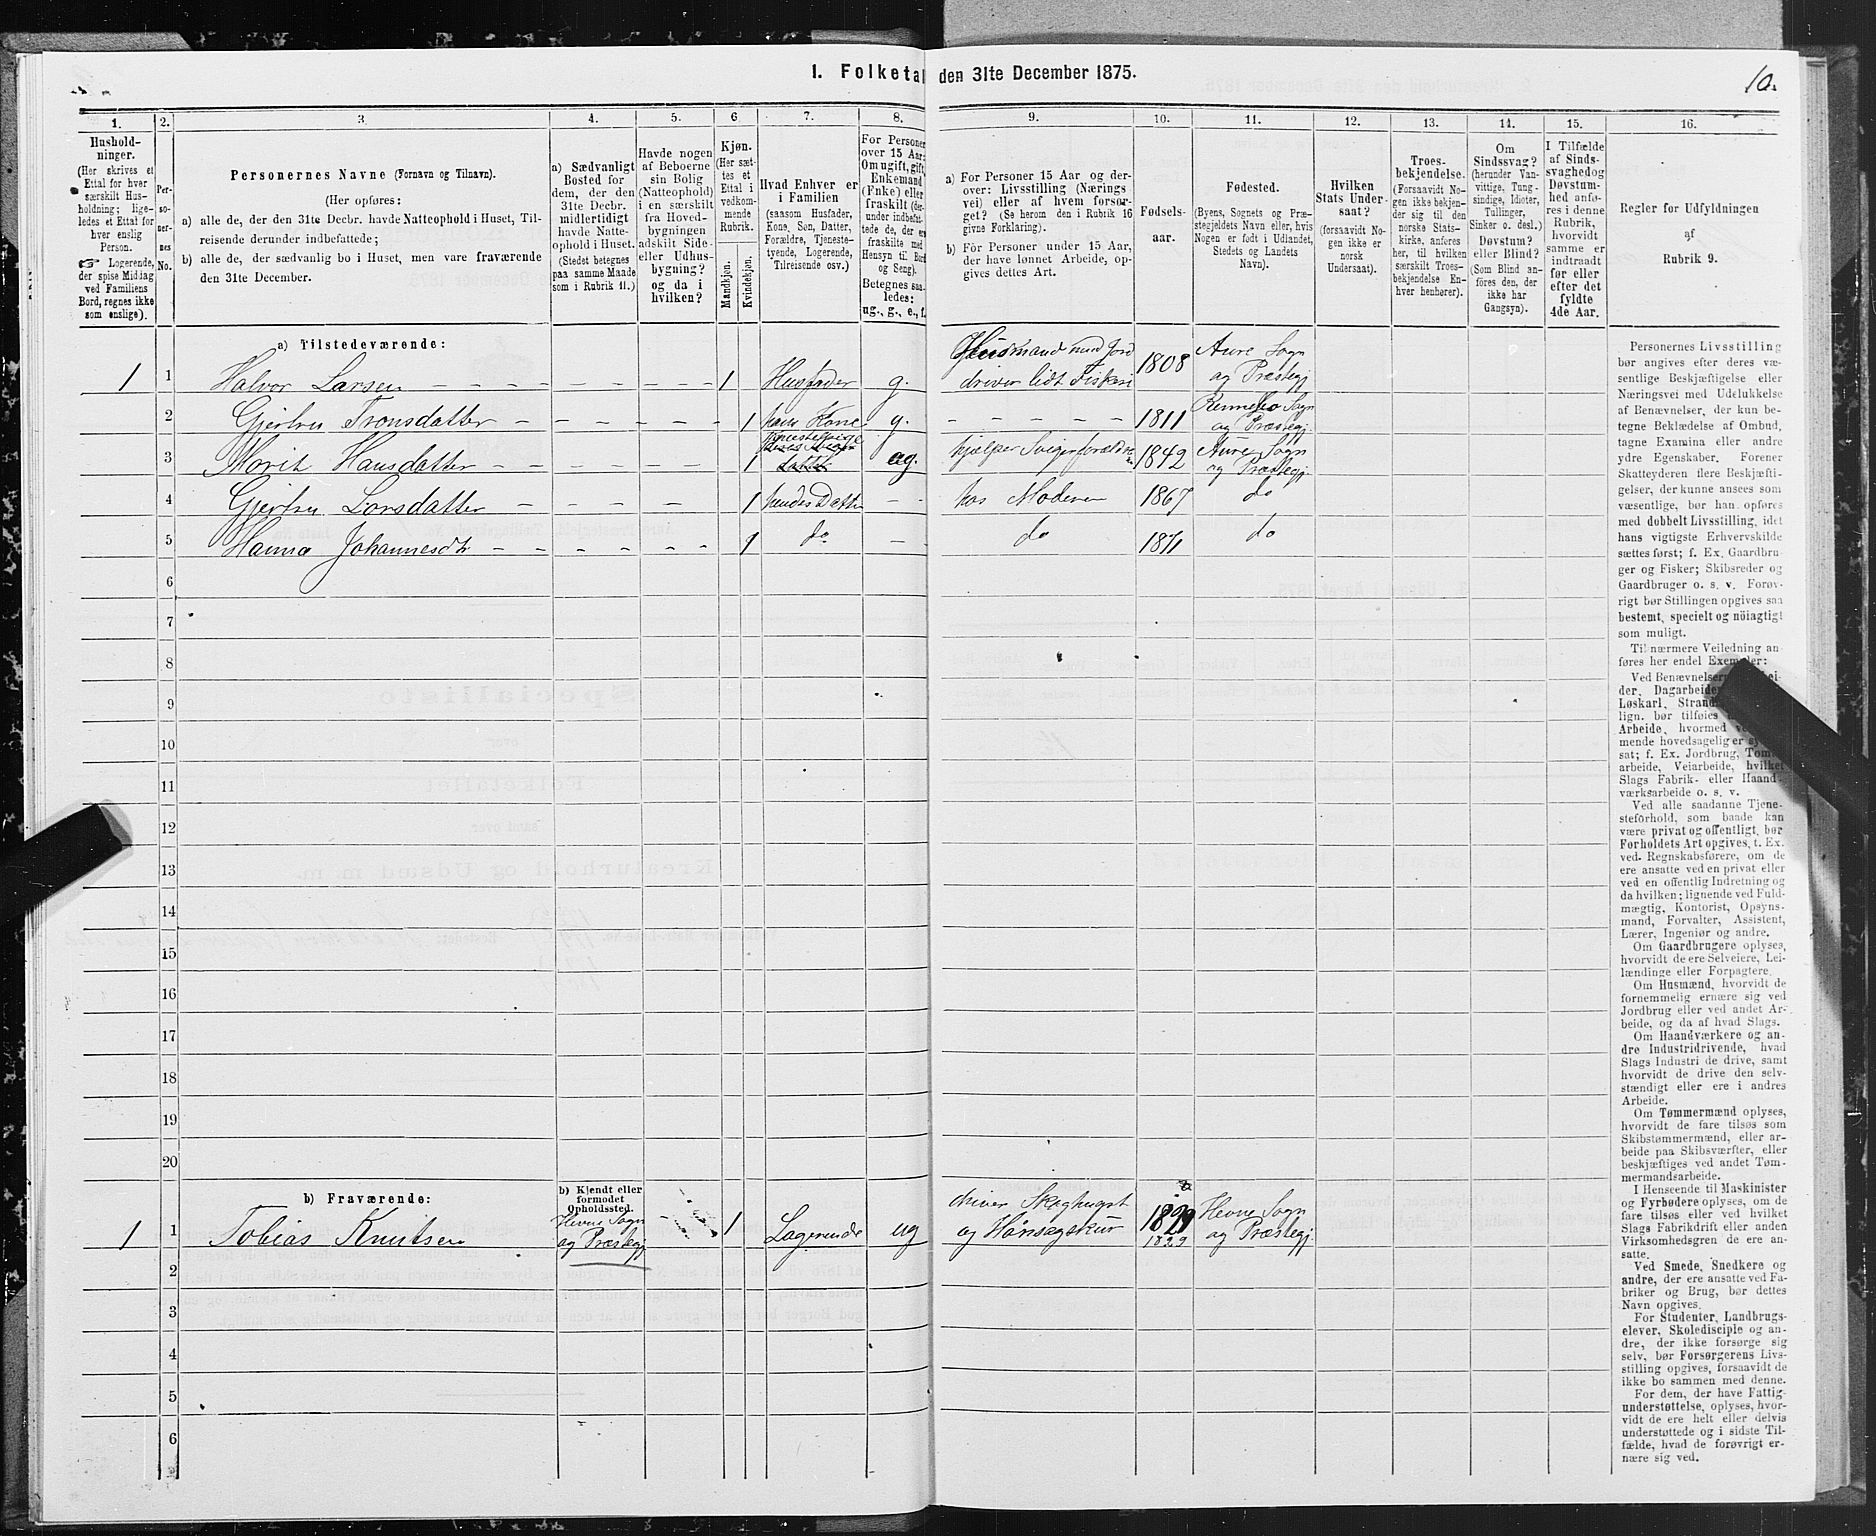 1. Folketal den 31te December 1875.
10.
1.
2.
3.
4.
5.
6
7.
8.
9.
10.
11.
12.
13.
14.
15.
16.
Hushold-
ninger.
(Her skrives et
Ettal for hver
særskilt Hus-
holdning; lige-
ledes et Ettal for
hver enslig
Person.
☞ Logerende,
der spise Middag
ved Familiens
Bord, regnes ikke
som enslige).
Per-
so-
ner-
nes
No.
Personernes Navne (Fornavn og Tilnavn).
(Her opføres:
a) alle de, der den 31te Decbr. havde Natteophold i Huset, Til-
reisende derunder indbefattede;
b) alle de, der sædvanlig bo i Huset, men vare fraværende
den 31te December.
a) Sædvanligt
Bosted for
dem, der den
31te Decbr.
midlertidigt
havde Natte-
ophold i Huset.
(Stedet betegnes
paa samme Maade
som i Rubrik 11.)
Havde nogen
af Beboerne
sin Bolig
(Natteophold)
i en særskilt
fra Hoved-
bygningen
adskilt Side-
eller Udhus-
bygning?
og da i
hvilken?
Kjøn.
(Her sæt-
tes et
Ettal i
vedkom-
mende
Rubrik.
Mandkjøn.
Kvindekjøn.
Hvad Enhver er
i Familien
(saasom Husfader,
Kone, Søn, Datter,
Forældre, Tjeneste-
tyende, Logerende,
Tilreisende osv.)
For Personer
over 15 Aar:
Omugift, gift,
Enkemand
(Enke) eller
fraskilt (der-
under indbefat-
tede de, der ere
fraskilte med
Hensyn til Bord
og Seng).
Betegnes saa-
ledes:
ug., g., e., f.
a) For Personer 15 Aar og der-
over: Livsstilling (Nærings
vei) eller af hvem forsør-
get? (Se herom den i Rubrik 16
givne Forklaring).
b) Før Personer under 15 Aar,
der have lønnet Arbeide, op-
gives dettes Art.
Fødsels-
aar.
Fødested.
(Byens, Sognets og Præ-
stegjeldets Navn, eller hvis
Nogen er født i Udlandet,
Stedets og Landets
Navn).
Hvilken
Stats Under-
saat?
(forsaavidt No-
gen ikke er
norsk
Undersaat).
Troes-
bekjendelse.
(Forsaavidt No-
gen ikke bekjen-
der sig til den
norske Stats-
kirke, anføres
her, til hvilken
særskilt Troes-
bekjendelse En-
hver henhører).
Om
Sindssvag?
(herunder Van-
vittige, Tung-
sindige, Idioter,
Tullinger,
Sinker o. desl.)
Døvstum?
eller Blind?
(Som Blind an-
føres den, der
ikke har
Gangsyn).
I Tilfælde
af Sinds-
svaghed og
Døvstum-
hed anfø-
res i denne
Rubrik,
hvorvidt
samme er
indtraadt
før eller
efter det
fyldte
4de Aar.
Regler for Udfyldningen
af
Rubrik 9.
a) Tilstedeværende:
1 1 Halvor Larsen 1 Husfader g. Husmand med Jord driver lidt Fiskeri 1808 Aure Sogn og Præstegj
2 Gjertru Tronsdatter 1 hans Kone g. 1811 Rennebo Sogn og Præstegj
3 Marit Hansdatter 1 ug. hjælper Svigerforældre 1842 Aure Sogn og Præstegj
4 Gjertru Larsdatter 1 hendes Datter hos Moderen 1867 do
5 Hanna Johannesdtr 1 do do 1871 do
6
7
8
9
10
11
12
13
14
15
16
17
18
19
20
b) Fraværende:
b) Kjendt eller
formodet
Opholdssted.
1 1 Tobias Knutsen Hevne Sogn og Præstegj 1 Logerende ug driver Skoghugst og 1829 Hevne Sogn og Præstegj
1829
2
3
4
5
6
Personernes Livsstilling
bør angives efter deres væ-
sentlige Beskjæftigelse eller
Næringsvei med Udelukkelse
af Benævnelser, der kun be-
tegne Beklædelse af Ombud,
tagne Examina eller andre
ydre Egenskaber. Forener
Skatteyderen flere Beskjæfti-
gelser, der kunne ansees som
væsentlige, bør han opføres
med dobbelt Livsstilling, idet
hans vigtigste Erhvervskilde
sættes først; f. Ex. Gaardbru-
ger og Fisker; Skibsreder og
Gaardbruger o. s. v. Forøv-
rigt bør Stillingen opgives saa
bestemt, specielt og nöiagtigt
som muligt.
Til nærmere Veiledning an-
føres her endel Exempler:
Ved Benævnelser
der, Dagarbeider
Løskarl, Strand
lign. bør tilføies
Arbeide, hvormed
mende hovedsagelig er
sat; f. Ex. Jordbrug, Tom
arbeide, Veiarbeide, hvilket
Slags Fabrik- eller Haand-
værksarbeide o. s. v.
Ved alle saadanne Tjene-
steforhold, som baade kan
være privat og offentligt, bør
Forholdets Art opgives, t. Ex.
ved. Regnskabsførere, om de
ere ansatte ved en privat eller
ved en offentlig Indretning og
da hvilken; lignende ved Fuld-
mægtig, Kontorist, Opsyns-
mand, Forvalter, Assistent,
Lærer, Ingeniør og andre.
Om Gaardbrugere oplyses,
hvorvidt de ere Selveiere, Lei-
lændinge eller Forpagtere.
Om Husmænd, hvorvidt de
fornemmelig ernære sig ved
Jordbrug eller ved andet Ar-
beide, og da af hvad Slags.
Om Haandværkere og an-
dre Industridrivende, hvad
Slags Industri de drive, samt
hvorvidt de drive den selv-
stændigt eller ere i andres
Arbeide.
Om Tømmermænd oplyses,
hvorvidt de fare tilsøs som
Skibstømmermænd, eller ar-
beide paa Skibsværfter, eller
beskjæftiges ved andet Tøm-
mermandsarbeide.
I Henseende til Maskinister
og Fyrbødere oplyses, om de
fare tilsøs eller ved hvilket
Slags Fabrikdrift eller anden
Virksomhedsgren de ere an-
satte.
Ved Smede, Snedkere og
andre, der ere ansatte ved Fa-
briker og Brug, bør dettes
Navn opgives.
For Studenter, Landbrugs-
elever, Skoledisciple og an-
dre, der ikke forsørge sig
selv, bør Forsørgerens Livs-
stilling opgives, forsaavidt de
ikke bo sammen med denne.
For dem, der have Fattig-
understøttelse, oplyses, hvor-
vidt de ere helt eller delvis
understøttede og i sidste Til-
fælde, hvad de forøvrigt er-
nære sig ved.